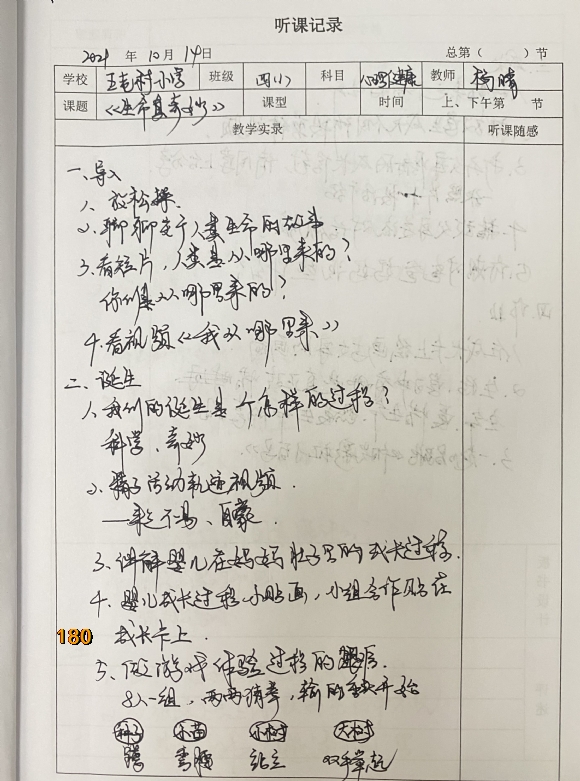 听课记录
2021 年 10 月 14日 总第（ ）节
学校 王吉村小学 班级 四(1) 科目 心理健康 教师 杨晴
课题 《生命真奇妙》 课型 时间 上、下午第 节
教学实录 听课随感
一、导入
1、放松操
2、聊聊关于人类生命的故事
3、看短片，人类是从哪里来的？
你们是从哪里来的？
4、看视频《我从哪里来》
二、诞生
1、我们的诞生是个怎样的过程？
科学、奇妙
2、精子活动轨迹视频.
——来之不易、
3、讲解婴儿在妈妈肚子里的成长过程.
4、婴儿成长过程小贴画，小组合作贴在
成长卡上.
180
5、做游戏体验过程的
8人一组，两两猜拳，输的重新开始
种子 小苗 小树 大树
蹲 弯腰 站立 双手举起